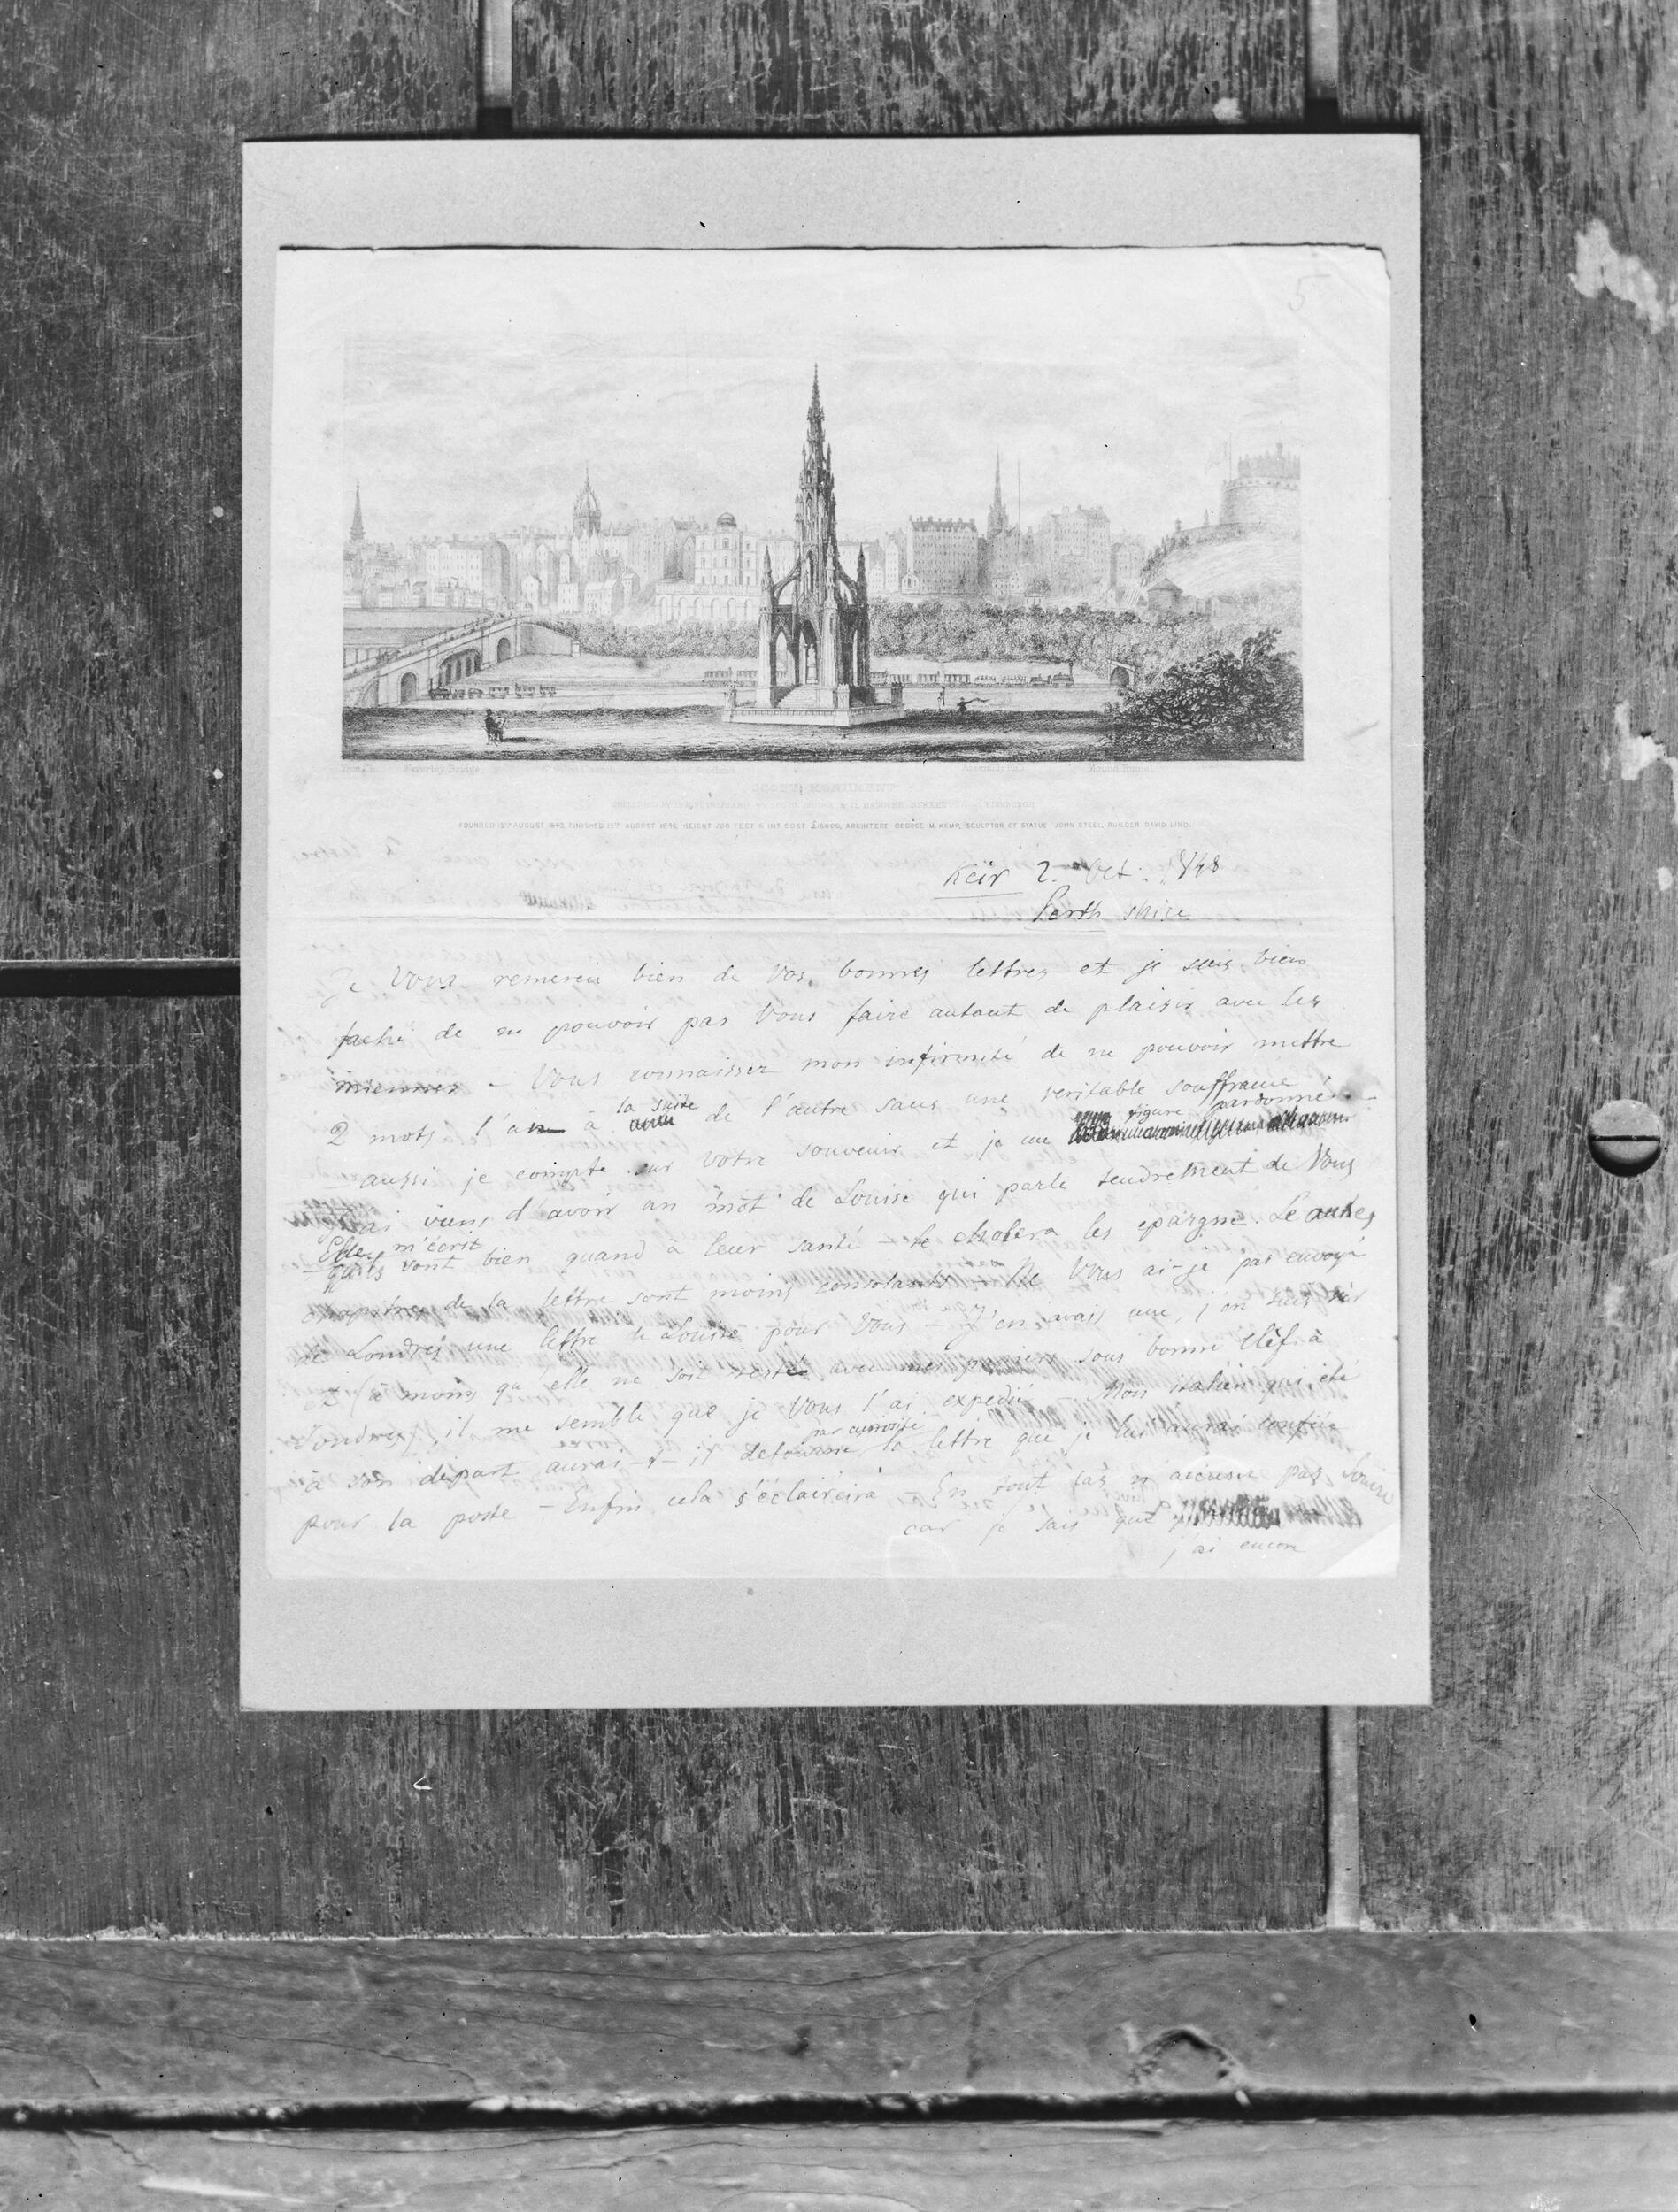 5
Waverley Bridge
Mound Tunnel
SCOTT MONUMENT
FOUNDED 15TH AUGUST 1840, FINISHED AUGUST 1846, HEIGHT 200 FEET 6 INT COST £15000, ARCHITECT GEORGE M. KEMP, SCULPTOR OF STATUE JOHN STEEL, BUILDER DAVID LIND.
Keir 2. Oct: 1848
Perth shire
Je Vous remercie bien de Vos bonnes lettres et je suis bien
faché de ne pouvoir pas Vous faire autant de plaisir avec les
miennes - Vous connaissez mon infirmité de ne pouvoir mettre
2 mots l'un à la suite de l'autre sans une veritable souffrance
aussi je compte sur votre souvenir et je me figure pardonné -
J'ai viens d'avoir un mot de Louise qui parle tendrement de Vous
Elle m'écrit
qu'ils vont bien quand à leur santé - le cholera les epargne. Le autres
de la lettre sont moins consolants - Ne Vous ai-je pas envoyé
de Londres une lettre de Louise pour Vous - J'en avais une, j'en suis sûr
et (à moins qu'elle ne soit restée avec mes papiers sous bonne clef à
Londres) il me semble que je Vous l'ai expedié - Mon italien qui été
par curiosité
à son départ aurai-t-il detourné la lettre que je lui aurai confié
pour la poste - Enfin cela s'éclaircira - En tout cas n'accusez pas Louise
car je sais que
j'ai encore